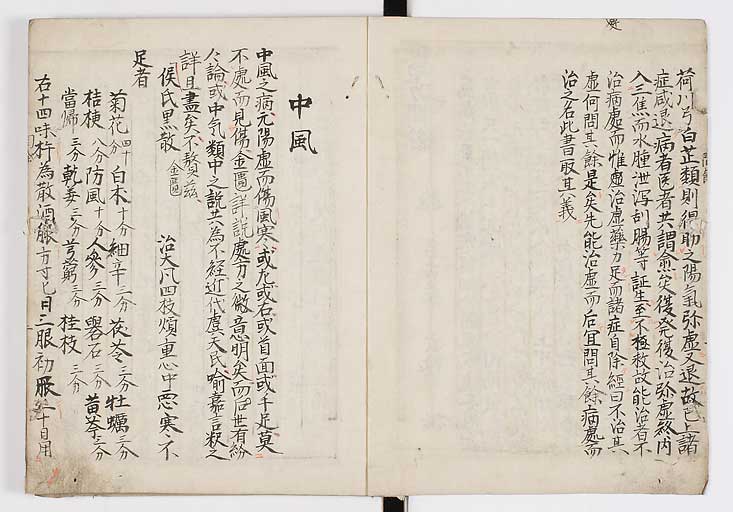 荷川芎白芷類則得助之陽氣弥虚又退故已上諸
症咸退病者医者共謂愈矣後発後治弥虚終内
入三焦而水腫泄瀉刮腸等証生至不極救故能治者不
治病處而惟虚治虚薬力足而諸症自除經曰不治其
虚何問其餘是矣先能治虚而后宜問其餘病處而
治之名此書取其義
中風
中風之病元陽虚而傷風寒或左或右或首面或手足莫
不處而見傷金匱詳説處方之微意明矣而后世有紛
々論或中気類中之説共為不経近代虞天民喻嘉言釈之
詳且盡矣不贅茲
侯氏黒散 金匱 治大風四肢煩重心中悪寒不
足者
菊花 四十分 白朮 十分 細辛 三分 茯苓 三分 牡蠣 三分
桔梗 八分 防風 十分 人参 三分 礬石 三分 黄芩 三分
當帰 三分 乾姜 三分 芎窮 三分 桂枝 三分
右十四味杵為散酒服方寸匕日一服初服二十日用